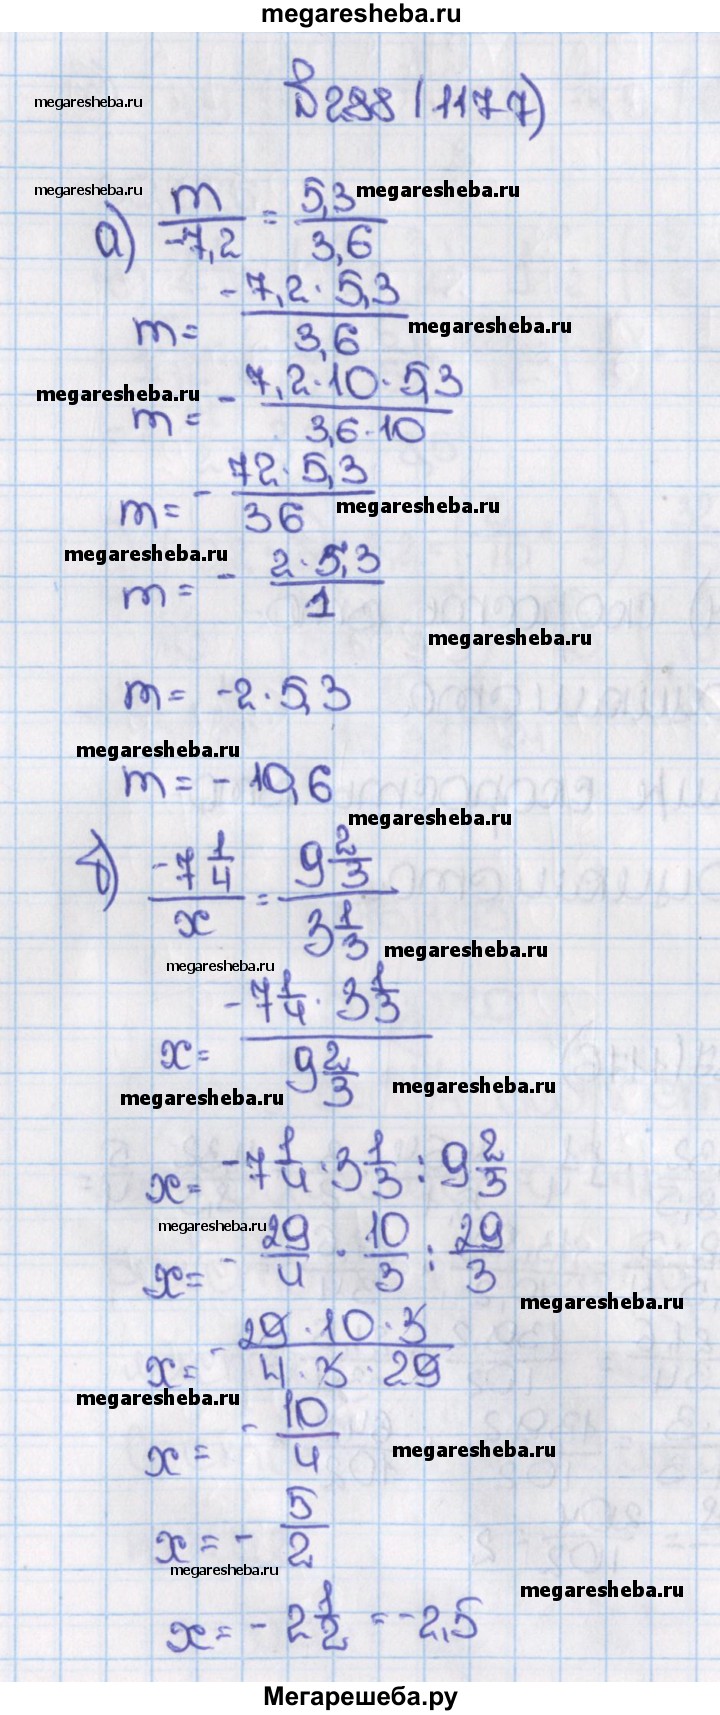 megaresheba.ru
megaresheba.ru
288 (1177)
megaresheba.ru megaresheba.ru
а) m/-7,2 = 5,3/3,6
m = -7,2·5,3/3,6 megaresheba.ru
megaresheba.ru
m = - 7,2·10·5,3/3,6·10
m = - 72·5,3/36 megaresheba.ru
megaresheba.ru
m = - 2·5,3/1
megaresheba.ru
m = -2·5,3
megaresheba.ru
m = -10,6
megaresheba.ru
б) -7 1/4 / x = 9 2/3 / 3 1/3
megaresheba.ru
megaresheba.ru
x = -7 1/4 · 3 1/3 / 9 2/3
megaresheba.ru megaresheba.ru
x = -7 1/4 · 3 1/3 : 9 2/3
megaresheba.ru
x = - 29/4 · 10/3 : 29/3
megaresheba.ru
x = - 29·10·3/4·3·29
megaresheba.ru
x = - 10/4 megaresheba.ru
x = - 5/2
megaresheba.ru
megaresheba.ru
x = - 2 1/2 = -2,5
Мегарешеба.ру